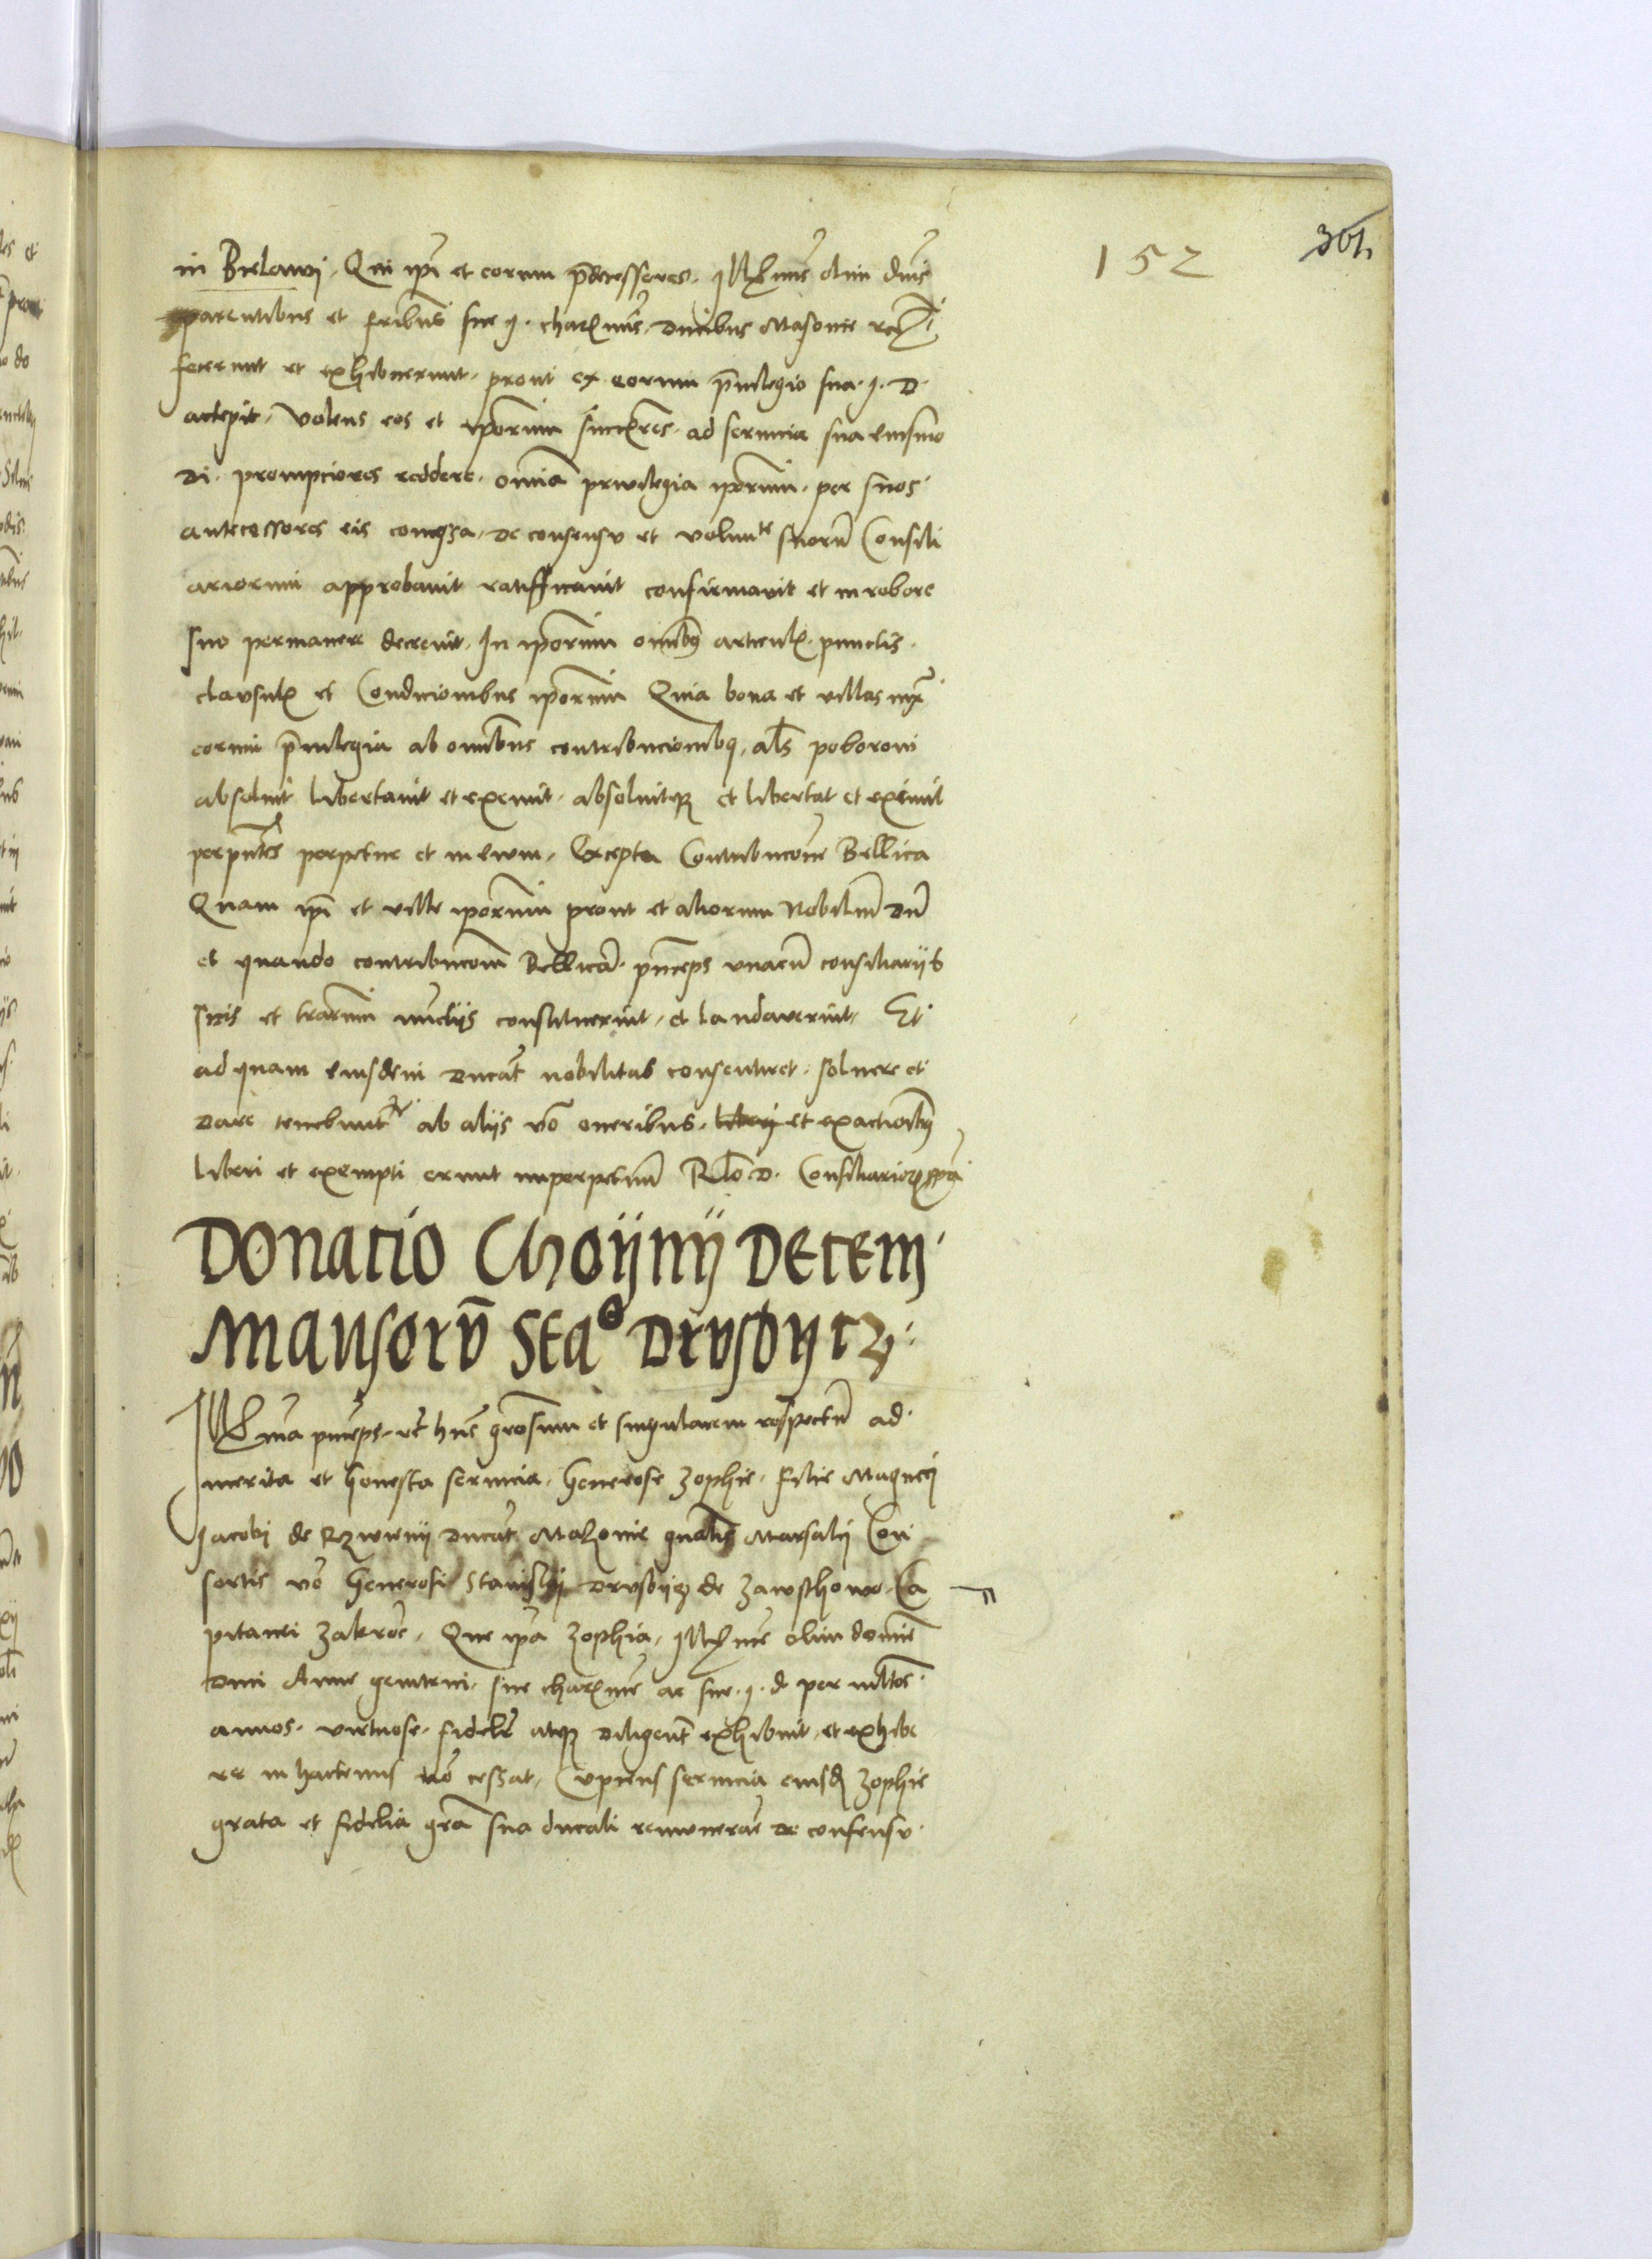 152
301
in Bielawi, Qui ipī et eorum p̄decessores. Illxmis olim dnis
parentibus et fribus sue I. charxmis, ducibus Masouie
fecerunt et exhibuerunt. prout ex eorum p̄uilegio sua. I. D.
accepit, Volens eos et ipōrum succxres. ad seruicia sua eiusmo
di. prompciores reddere. omīa priuilegia ipōrum. per suos
antecessores eis concessa, de consensu et volunte suorū Consili
ariorum approbauit ratifficauit confirmauit et in robore
suo permanere decreuit. In ipōrum omībus articulx. punctis.
clausulx et Condicionibus ipōrum Quia bona et villas iux̄
eorum p̄uilegia ab omībus contribucionibus, als poborowi
absoluit libertauit et exemit. absoluitque et libertat et eximit
per p̄ntes perpetue et in ewm, Excepta Contribucōne Bellica
Quam ipī et ville ipōrum prout et aliorum Nobiliū dū
et quando contribucōnem Bellicā. p̄nceps vnacū consiliarijs
suis et trārum nuncijs constituerint, et laudauerint, Et
ad quam eiusdem ducat̄ nobilitas consentiret. soluere et
dare tenebuntr ab alijs vō oneribus. liberj et exactioibus
liberi et exempti erunt imperpetuū Rlō D. Consiliarior
Donacio Choijnij Decem
Mansorū Stao Drvsbijcz.
Illxma p̄nceps. rc̄t hn̄s grōsum et singularem respectū ad.
merita et honesta seruicia. Generose Zophie. filie Magnci
Jacobi de Rzwenij ducat̄ Mazouie gn̄alis Marsalci Con
sortis vō Generosi Stanislaj Drvsbijcz de Zawsthowo. Ca
pitanei Zakroc̄. Que ipā Zophia, Illxme olim domīe
dn̄i Anne genitrici. sue charxme ac sue. I. d per multos
annos. virtuose. fidelr̄ atque diligent̄ exhibuit. et exhibe
re in hactenus nō cessat, Cupiens seruicia eiusd̄ Zophie
grata et fidelia grā sua ducali remunerar̄e de consensu.